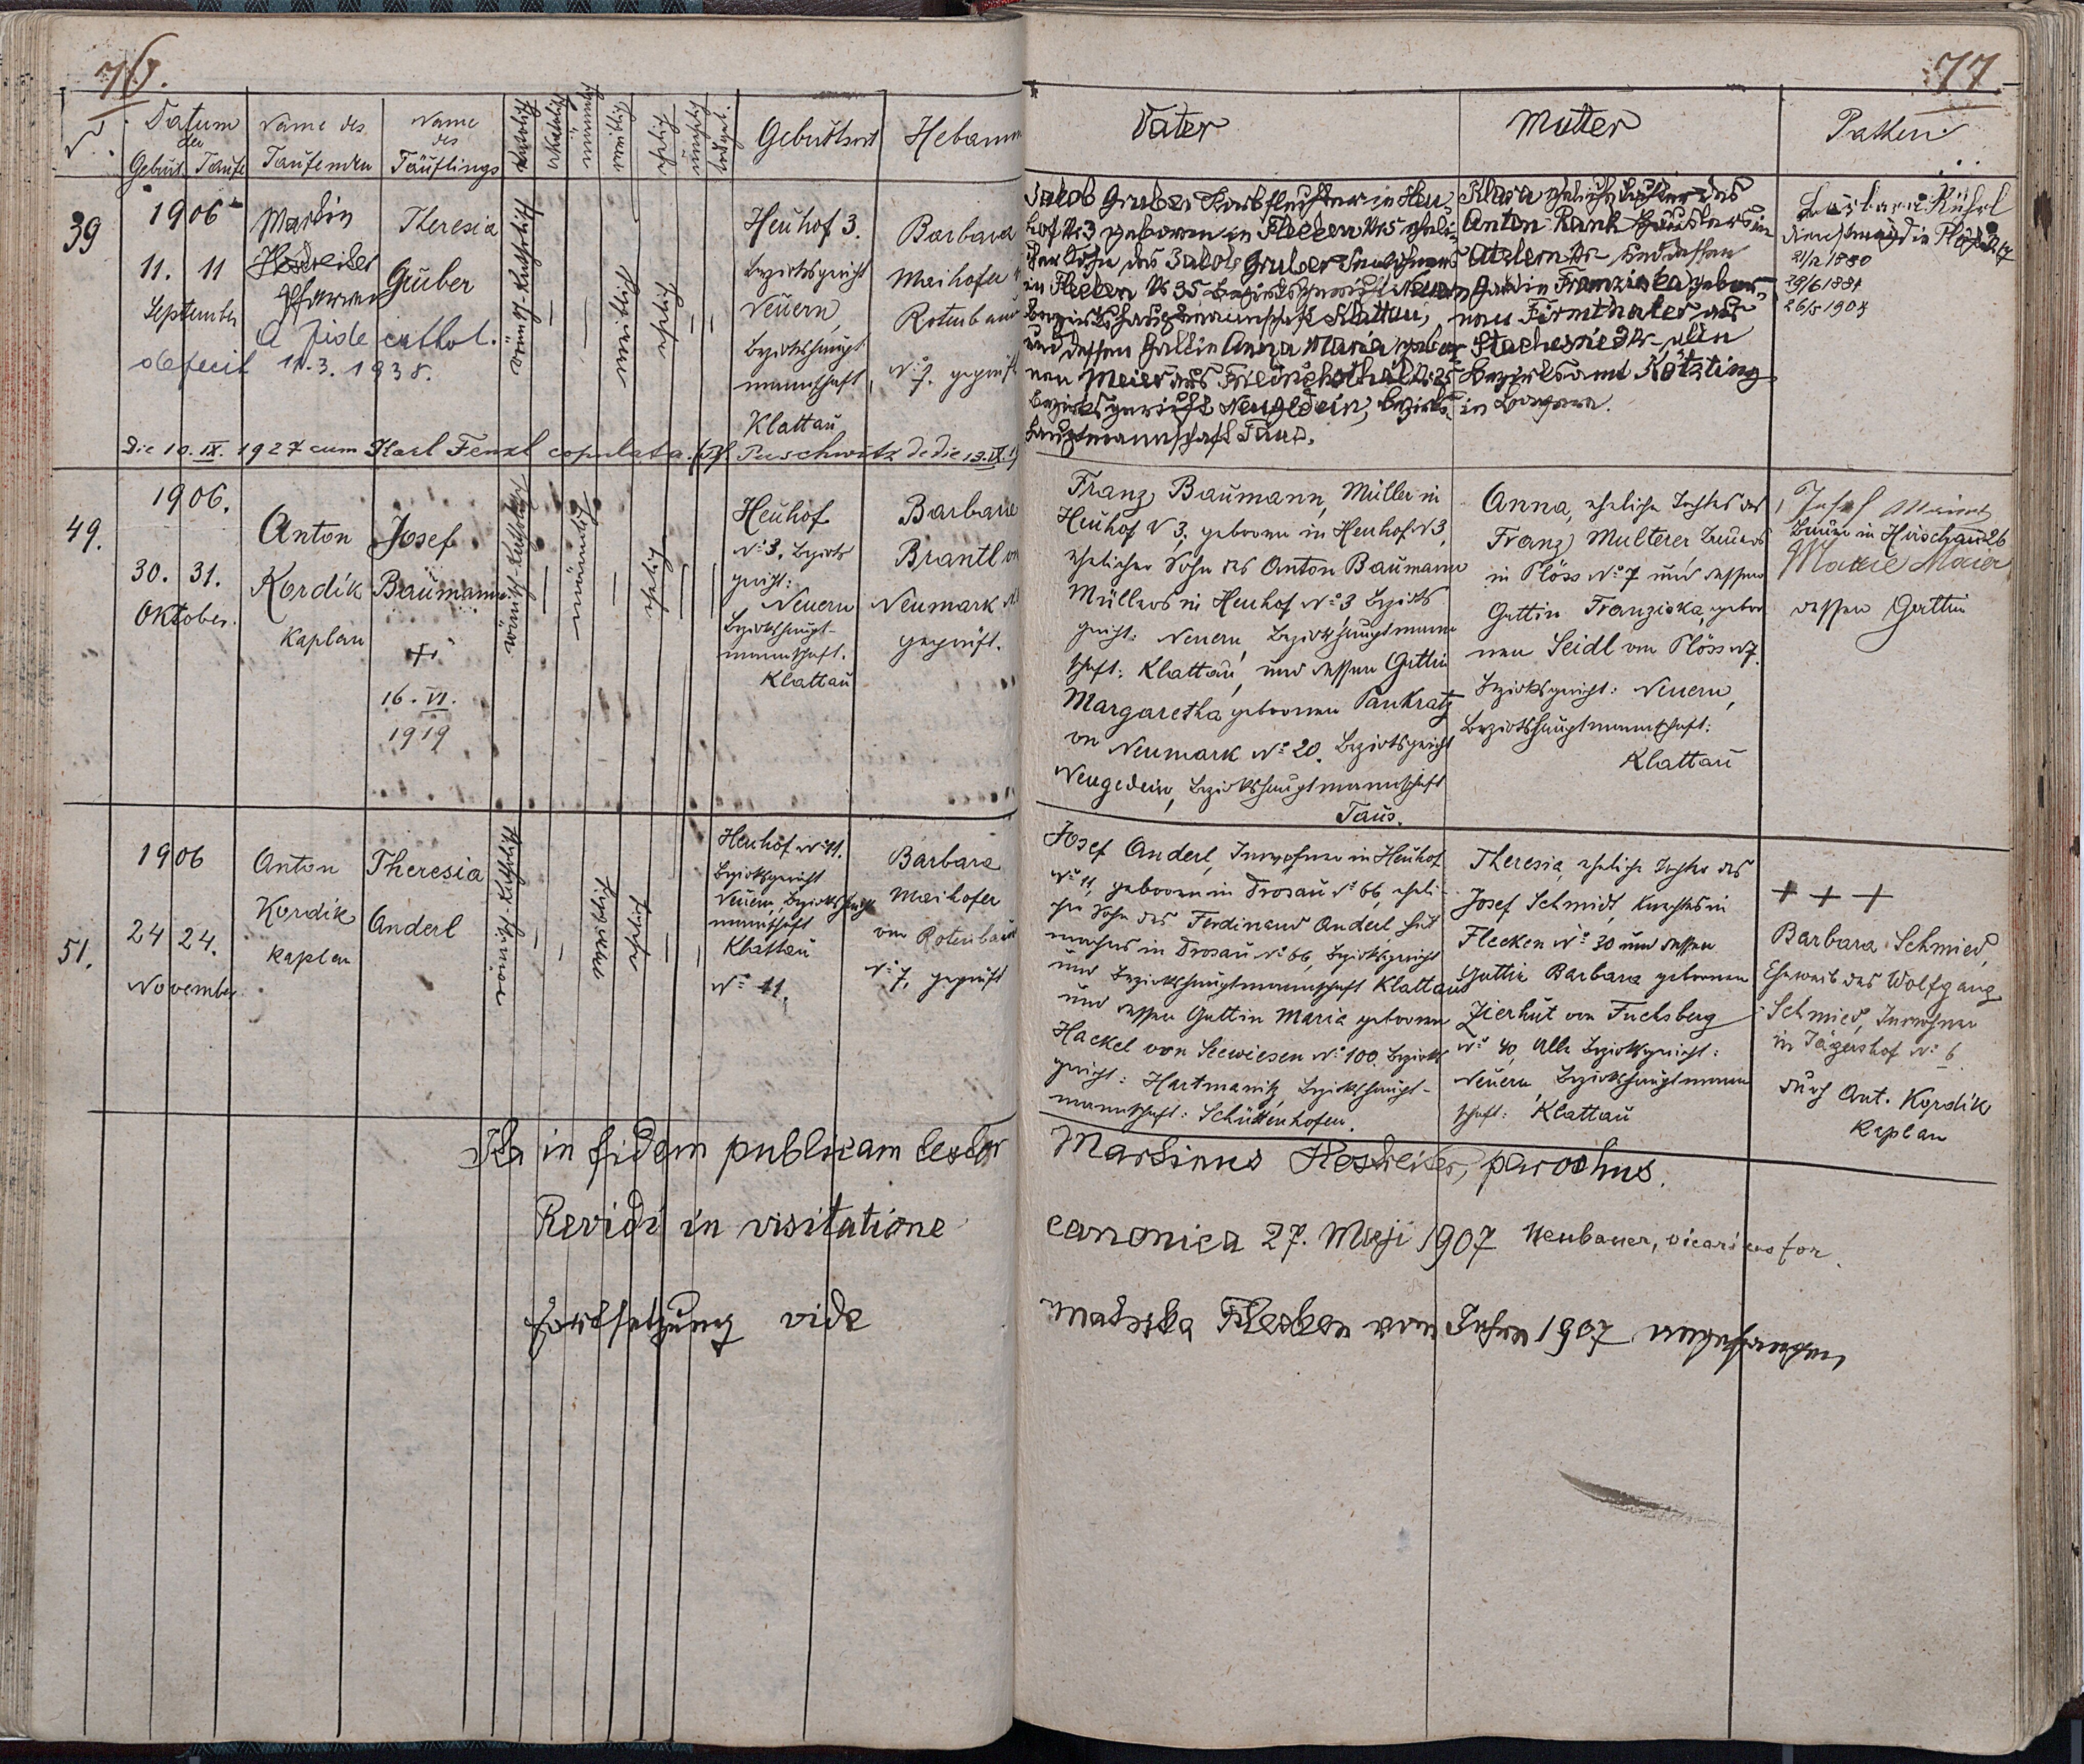 76.
77
N.
Datum
der
Geburt Taufe
Name des
Taufenden
Name
des
Täuflings
katholisch
akatholisch
männlich
weiblich
ehelich
unehelich
todgeb.
Geburtsort
Hebamm
Vater
Mutter
Pathen
39
1906
11. 11
September
Martin
Hostreiter
Pfarrer
Theresia
Gruber
A fide cathol.
defecit 11.3.1938.
römisch-katholisch
weiblich
ehelich
Heuhof 3.
Bezirksgericht
Neuern,
Bezirkshaupt
mannschaft,
Klattau
Barbara
Maihofer
Rotenbaum
N: 7. geprüft
Die 10. IX. 1927 cum Karl Fenzl copulata. Puschwitz de die 13. IX.
Jakob Gruber Korbflechter in Heu-
hof N: 3 geboren in Flecken N: 5 eheli-
cher Sohn des Jakob Gruber Inwohners
in Flecken N: 35 Bezirksgericht Neuern
Bezirkshauptmannschaft Klattau,
und dessen Gattin Anna Maria gebor
nen Meier aus Friedrichsthal N: 25
Bezirksgericht Neugedein, Bezirks-
hauptmannschaft Taus.
Klara eheliche Tochter des
Anton Rank Häuslers in
Atzlern N: und dessen
Gattin Franziska gebor-
nen Fürnthaler aus
Stachesried N: , alle
Bezirksamt Kötzting
in Bayern.
Barbara Rühfl
Dienstmagd in
21/2 1880
29/6 1881
26/5 1904
49.
1906.
30. 31.
Oktober.
Anton
Kordik
Kaplan
Josef
Baumann
+
16. VI.
1919
römisch-katholisch
männlich
ehelich
Heuhof
N: 3. Bezirks
gericht:
Neuern
Bezirkshaupt-
mannschaft.
Klattau
Barbara
Brantl
Neumark
geprüft.
Franz Baumann, Müller in
Heuhof N 3, geboren in Heuhof N 3,
ehelicher Sohn des Anton Baumann
Müllers in Heuhof N: 3 Bezirks
gericht: Neuern, Bezirkshauptmann
schaft: Klattau, und dessen Gattin
Margaretha geborenen Pankratz
von Neumark N: 20. Bezirksgericht
Neugedein, Bezirkshauptmannschaft
Taus.
Anna, eheliche Tochter des
Franz Multerer Bauers
in Plöss N: 7 und dessen
Gattin Franziska, gebor
nen Seidl von Plöss N 7.
Bezirksgericht: Neuern,
Bezirkshauptmannschaft:
Klattau
Josef
Bauer in Hirschau 26
Marie Maier
dessen Gattin
51.
1906
24 24.
November
Anton
Kordik
Kaplan
Theresia
Anderl
römisch-katholisch
weiblich
ehelich
Heuhof N: 11.
Bezirksgericht
Neuern, Bezirkshaupt
mannschaft
Klattau
N: 11.
Barbara
Maihofer
von Rotenbaum
N: 7, geprüft
Josef Anderl, Inwohner in Heuhof
N: 11, geboren in Drosau N: 66, eheli-
cher Sohn des Ferdinand Anderl, Hut
machers in Drosau N: 66, Bezirksgericht
und Bezirkshauptmannschaft Klattau
und dessen Gattin Maria geborenen
Hackel von Seewiesen N: 100. Bezirks
gericht: Hartmanitz, Bezirkshaupt-
mannschaft: Schüttenhofen.
Theresia, eheliche Tochter des
Josef Schmidt, Knechtes in
Flecken N: 30 und dessen
Gattin Barbara geborenen
Zierhut von Fuchsberg
N: 40, Alle Bezirksgericht:
Neuern, Bezirkshauptmann
schaft: Klattau
+ + +
Barbara Schmied,
Eheweib des Wolfgang
Schmied, Inwohner
in Jägershof N: 6
durch Ant. Kordik
Kaplan
Ita in fidem publicam testor Martinus Hostreiter, parochus.
Revidi in visitatione canonica 27. Maji 1907 Neubauer, vicarius for.
Fortsetzung vide Matrika Flecken vom Jahre 1907 angefangen